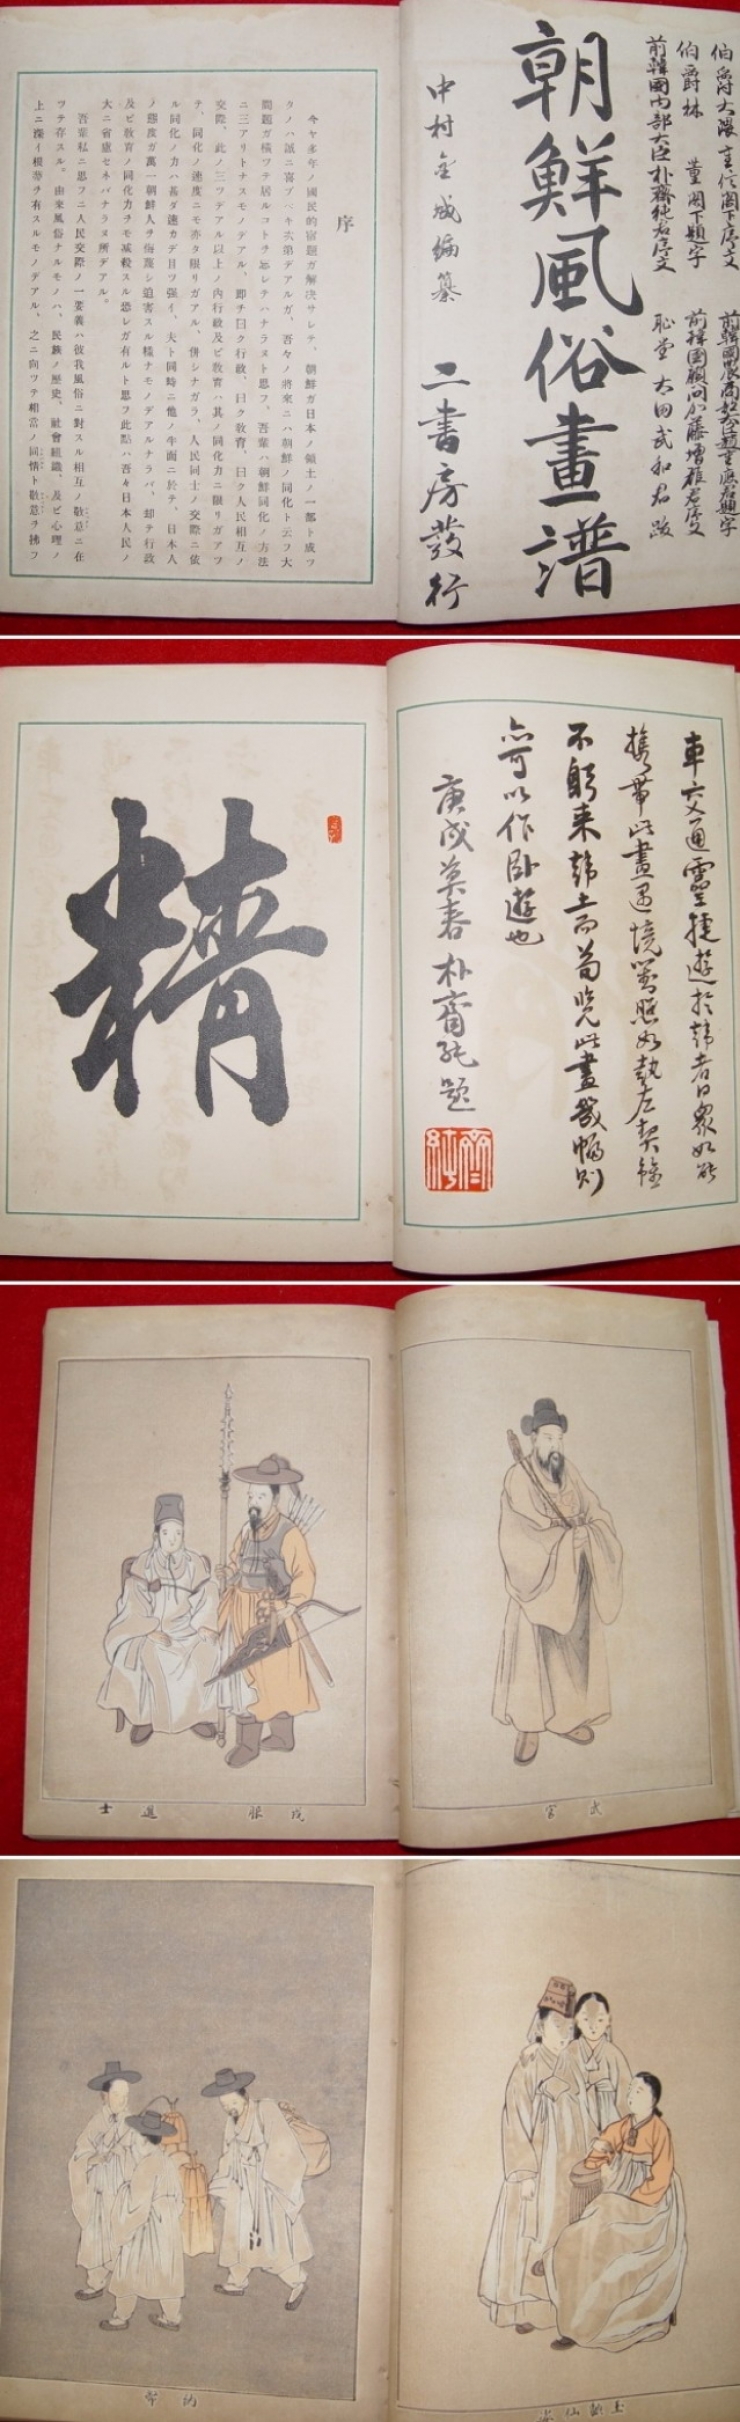 伯爵大隈重信閣下序文
伯爵林董閣下題字
前韓國内部大臣朴齊純君序文
前韓國農商工部大臣趙重應君題字
前韓國顧問加藤增雄君序文
恥堂太田武和君跋
朝鮮風俗畫譜
中村金城編纂
二書房發行
序
今ヤ多年ノ國民的宿題ガ解決サレテ、朝鮮ガ日本ノ領土ノ一部ト成ツ
タノハ誠ニ喜ブベキ次第デアルガ、吾々ノ將來ニハ朝鮮ノ同化ト云フ大
問題ガ横ツテ居ルコトヲ忘レテハナラヌト思フ、吾輩ハ朝鮮同化ノ方法
ニ三アリトナスモノデアル、即チ曰ク行政、曰ク教育、曰ク人民相互ノ
交際、此ノ三ツデアル以上ノ内行政及ビ教育ハ其ノ同化力ニ限リガアツ
テ、同化ノ速度ニモ亦タ限リガアル、併シナガラ、人民同士ノ交際ニ依
ル同化ノ力ハ甚ダ速カデ且ツ强イ、夫ト同時ニ他ノ半面ニ於テ、日本人
ノ態度ガ萬一朝鮮人ヲ侮蔑シ迫害スル樣ナモノデアルナラバ、却テ行政
及ビ教育ノ同化力ヲモ減殺スル恐レガ有ルト思フ此點ハ吾々日本人民ノ
大ニ省慮セネバナラヌ所デアル。
吾輩私ニ思フニ人民交際ノ一要義ハ彼我風俗ニ對スル相互ノ敬意ニ在
ツテ存スル。由來風俗ナルモノハ、民族ノ歴史、社會組織、及ビ心理ノ
上ニ深イ根蔕ヲ有スルモノデアル、之ニ向ツテ相當ノ同情ト敬意ヲ拂フ
車交通靈捷遊於韓者日衆如能
携帶此畫遇境對照如執左契雖
不躬来韓土而苟览此畫幾幅則
亦可以作卧遊也
庚戌莫春 朴齊純題
精
武官
戎服 選士
納幣